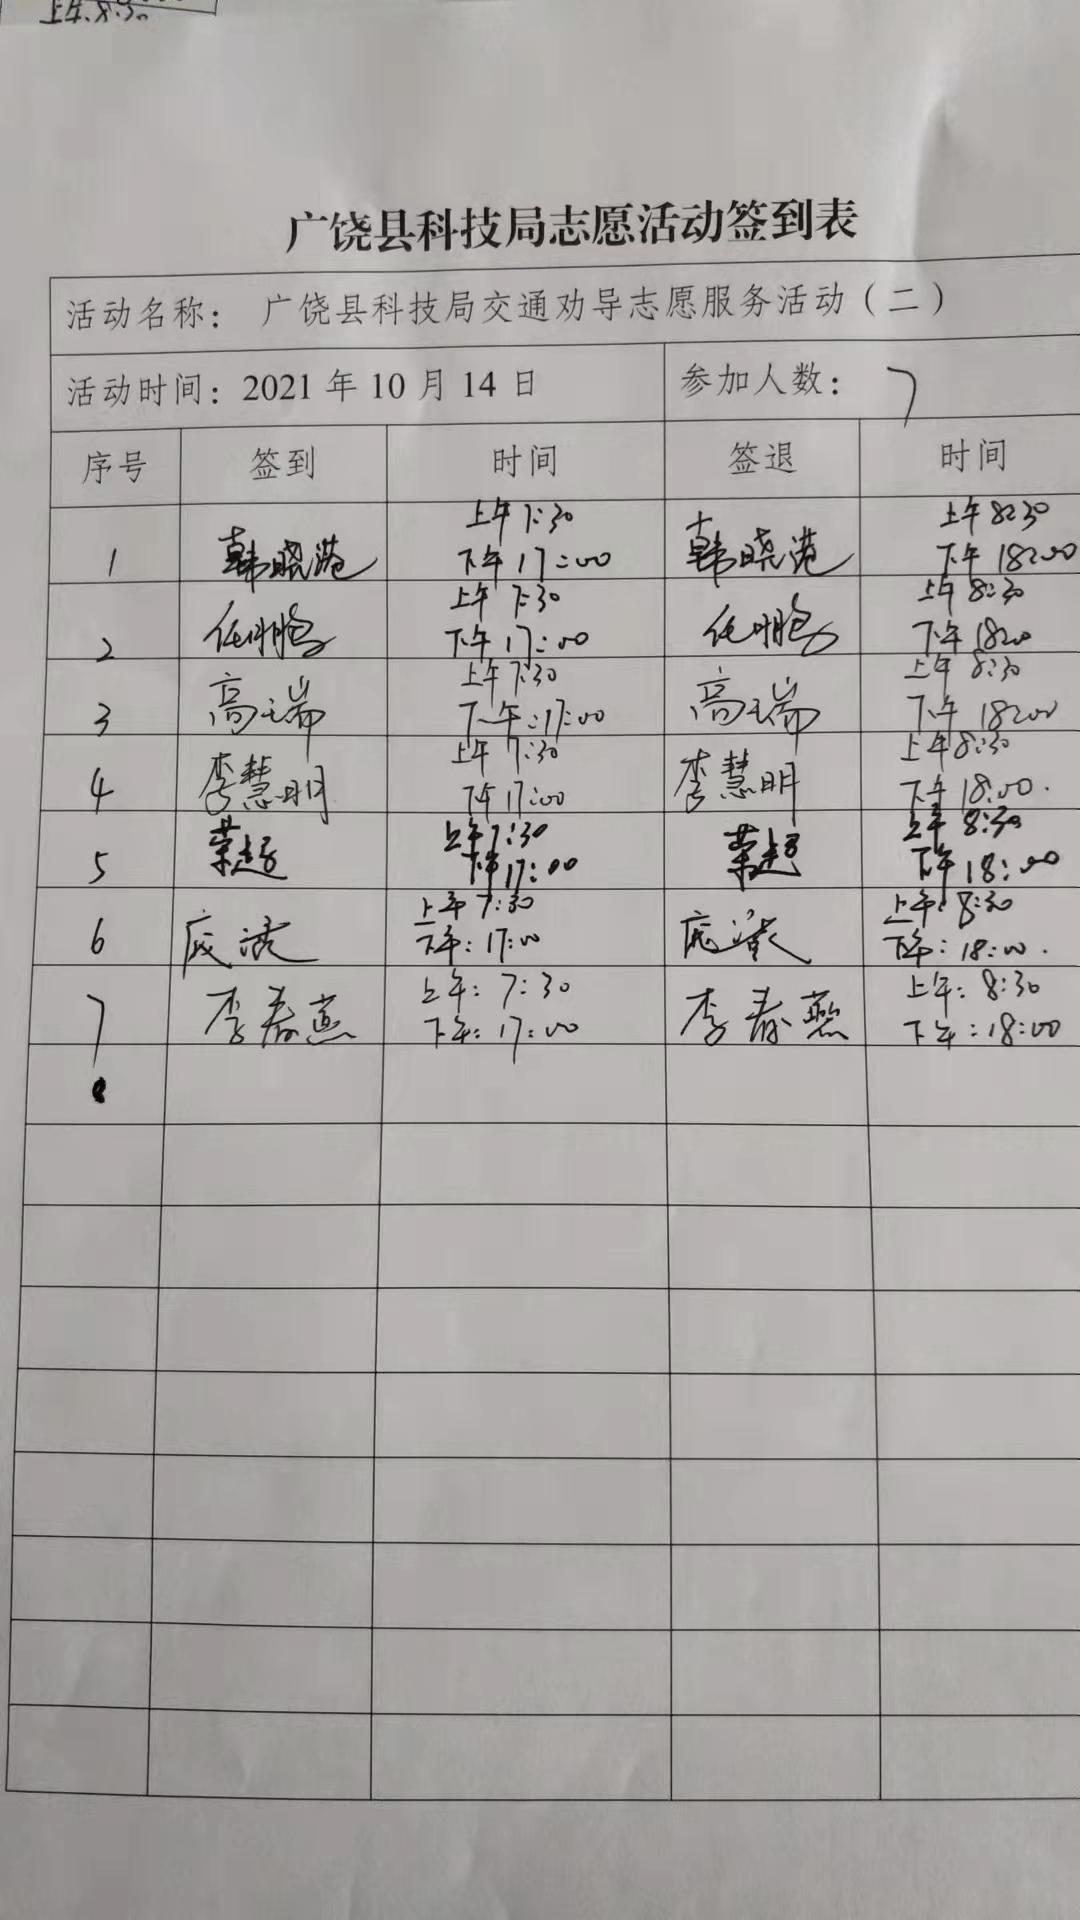 上午.8:30
广饶县科技局志愿活动签到表
活动名称： 广饶县科技局交通劝导志愿服务活动（二）
活动时间：2021 年 10 月 14 日 参加人数： 7
序号 签到 时间 签退 时间
上午 7:30 上午 8:30
1 韩晓港 下午 17:00 韩晓港 下午 18:00
上午 7:30 上午 8:30
2 任鹏 下午 17:00 任鹏 下午 18:00
上午 7:30 上午 8:30
3 高瑞 下午:17:00 高瑞 下午 18:00
上午 7:30 上午 8:30
4 李慧明 下午 17:00 李慧明 下午 18:00.
上午 7:30 上午 8:30
5 荣超 下午 17:00 荣超 下午 18:00
上午 7:30 上午: 8:30
6 下午: 17:00 下午: 18:00.
上午: 7:30 上午: 8:30
7 李春燕 下午: 17:00 李春燕 下午: 18:00